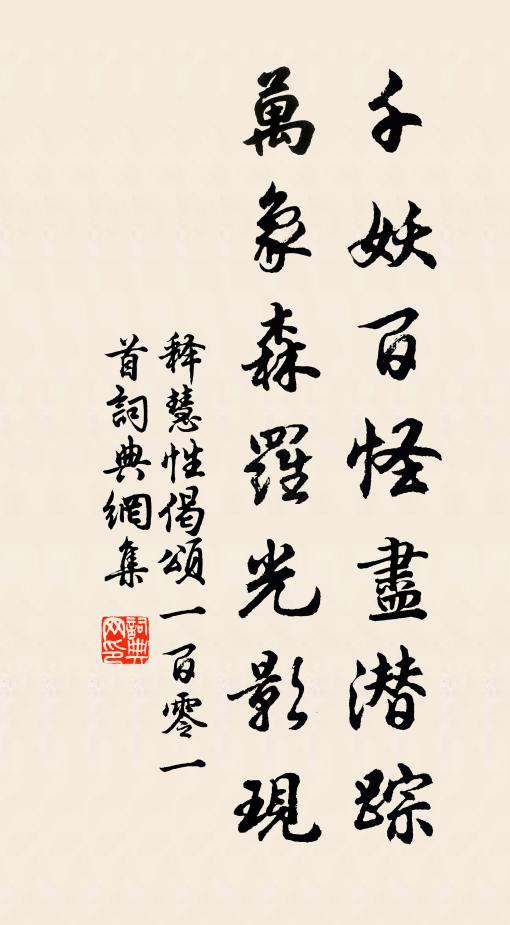 千妖百怪盡潛踪
萬象森羅光影現
释慧性偈頌一百零一
首詞典網集
詞典
网印